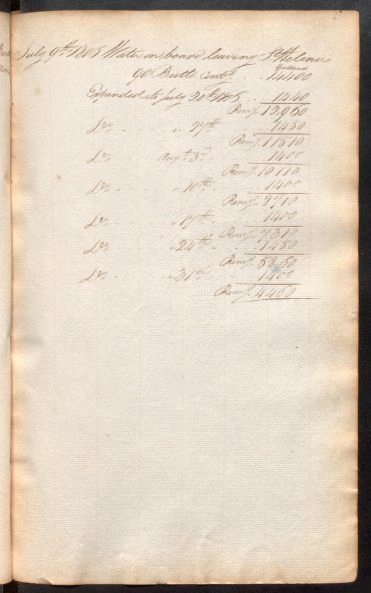 July 9th 1805 Water on board leaving St Helena
Gallons
90 Butts contg. .. 14400
Expended to July 20th 1805 .. 1440
Remg. 12960
Do .. .. 27th .. 1450
Remg. 11510
Do .. Augt. 3d .. 1400
Remg. 10110
Do .. .. 10th .. 1400
Remg. 8710
Do .. .. 17th .. 1400
Remg. 7310
Do .. .. 24th .. 1450
Remg. 5860
Do .. .. 31st .. 1400
Remg. 4460